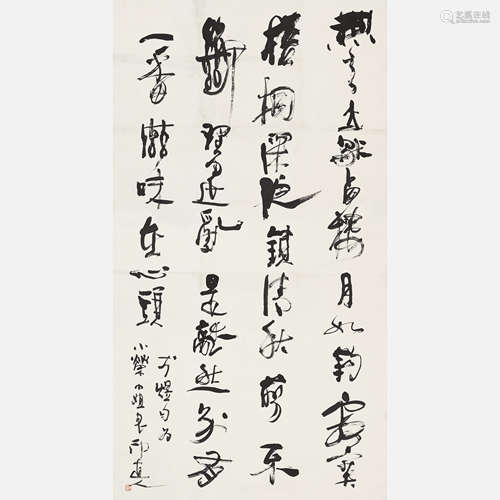 無言上獨西樓月如鉤寂寞
梧桐深院鎖清秋剪不
斷理還亂是離愁別是
一番滋味在心頭
李煜句為
小榮小姐
艺狐在线